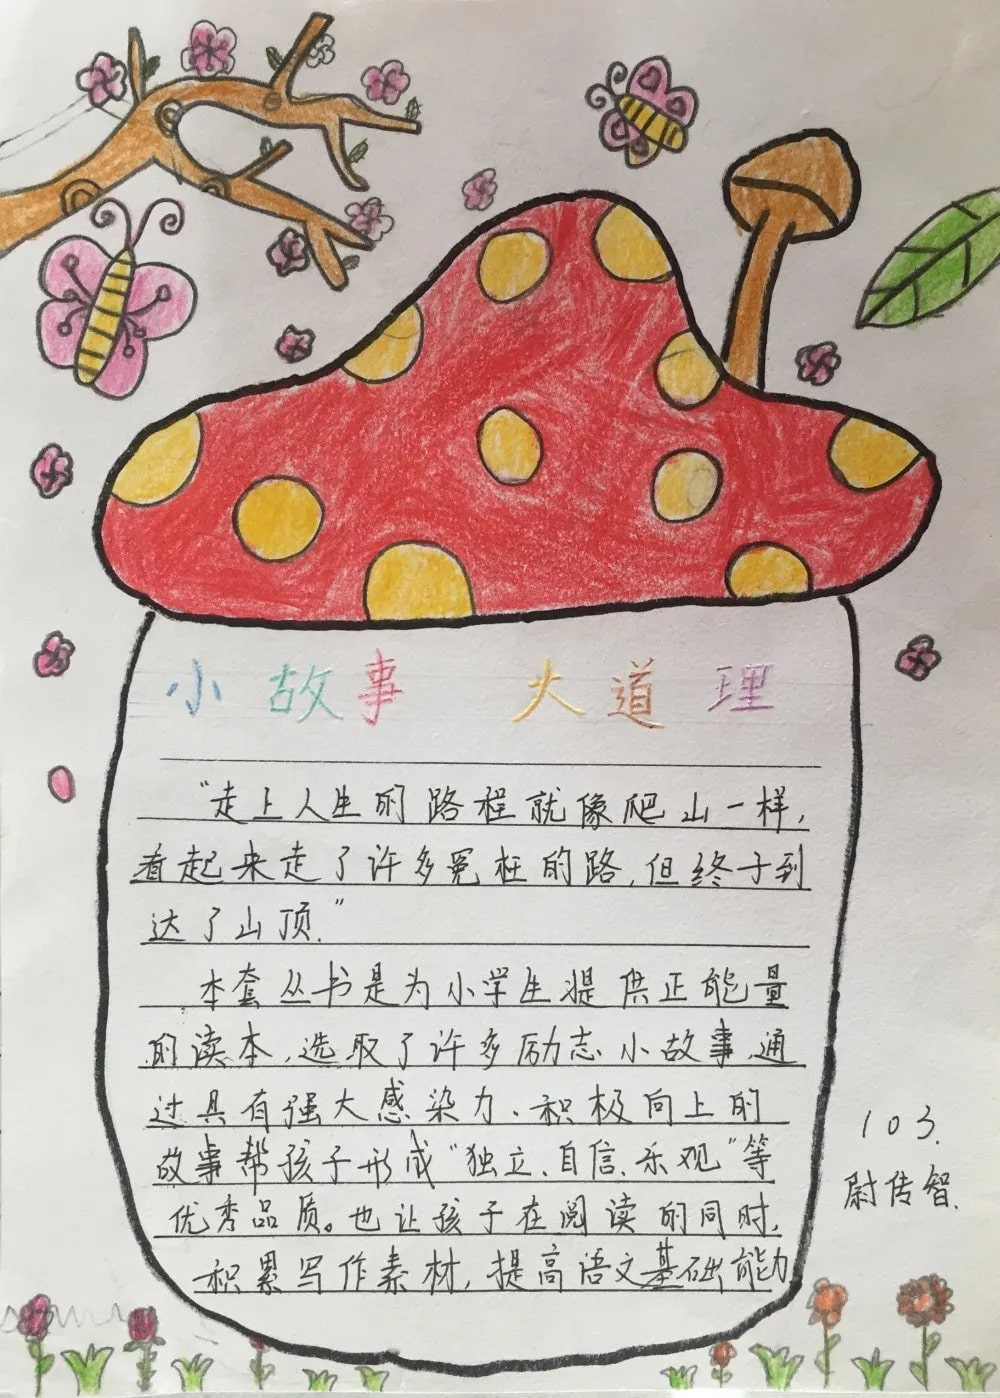 小故事 大道理
“走上人生的路程就像爬山一样,
看起来走了许多冤枉的路,但终于到
达了山顶.”
本套丛书是为小学生提供正能量
的读本,选取了许多励志小故事,通
过具有强大感染力、积极向上的
故事帮孩子形成“独立、自信、乐观”等
优秀品质。也让孩子在阅读的同时,
积累写作素材,提高语文基础能力
103.
尉传智.